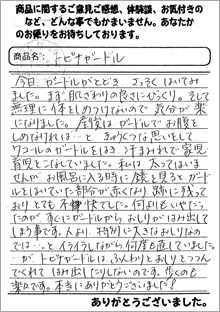 商品に関するご意見ご感想、体験談、お気付きの
など、どんな事でもかまいません。あなたか
のお便りをお待ちしております。
商品名: トピナガードル
今日、ガードルがとどき さっそくはいてみ
ました。まず肌ざわりの良さにびっくり。そして
無理に体をしめつけないので 気分が楽
になりました。产後は ガードルで お腹を
しめなければ…と きゅうくつな思いをして
ワコールのガードルをはき 汗まみれで家児
育児をこなしていました。私は 太ってはいま
せんが お風呂に入る時に 鏡を見るとガード
ルをはいていた部分が赤くなり 跡に残って
おりとても不愉快でした。何よりもいやだっ
たのが すぐにガードルから おしりがはみ出して
しまう事です。人より 特別に大きなおしりなの
では…と イライラしながら何度も直していました。
…が トピナガードルは、ふんわりとおしりをつつん
でくれて はみ出したりしないのです。歩くのも
楽です。本当に ありがとうございました!
ありがとうございました。